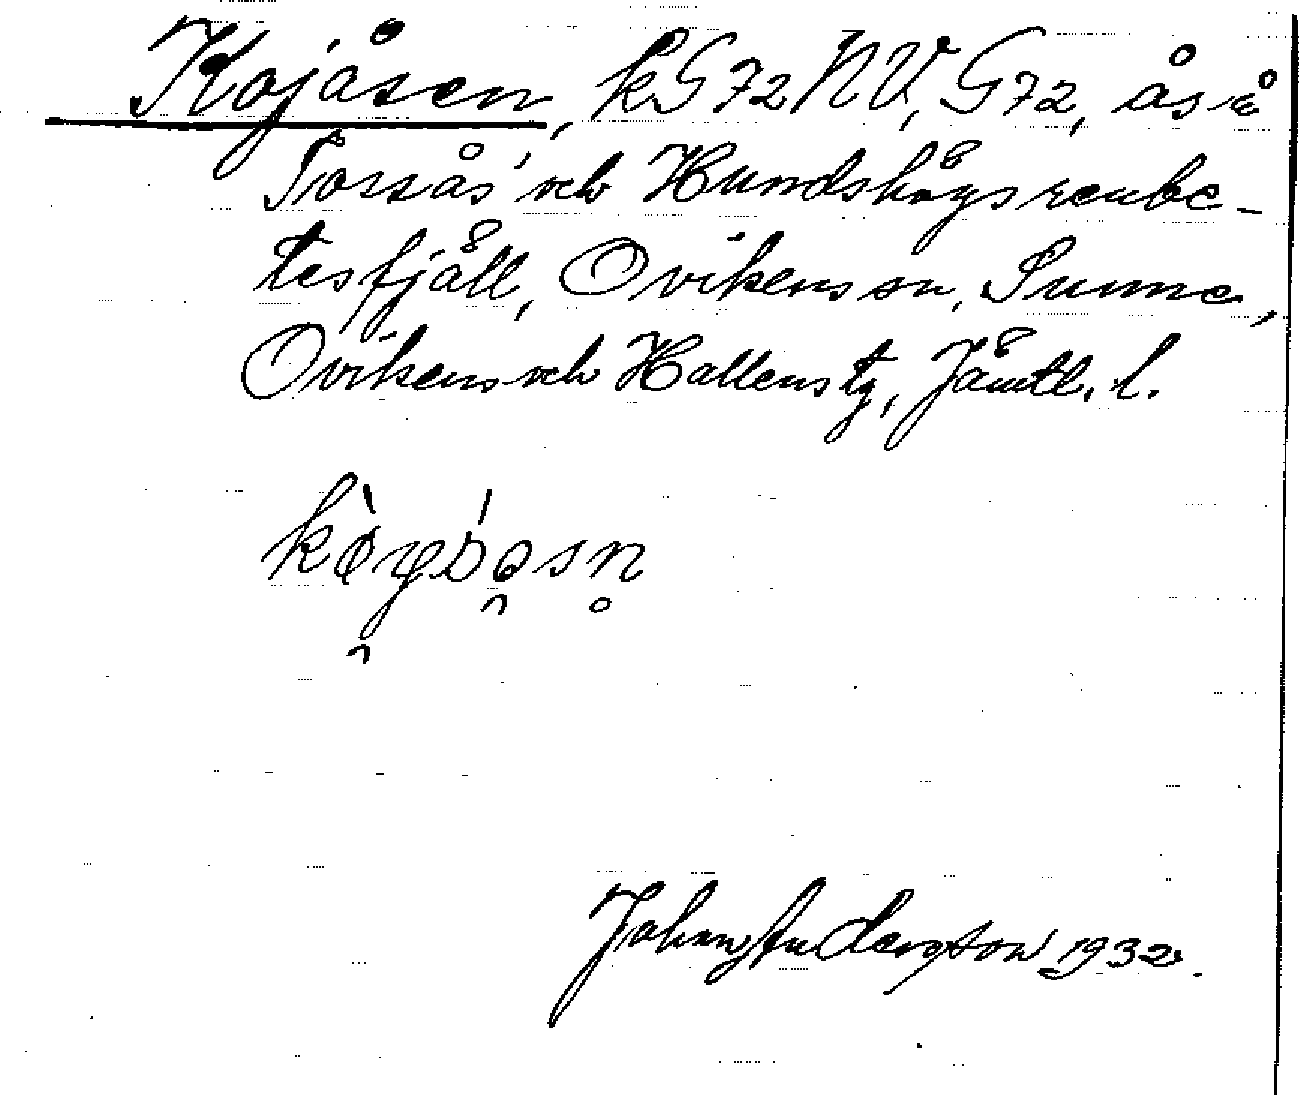 Kojåsen, kG72NV, G72, ås å
Torsås och Hundshögs renbe-
tesfjäll, Ovikens sn, Sunne,
Ovikens och Hallens tg, Jämtl. l.
Johan Anderson 1932.